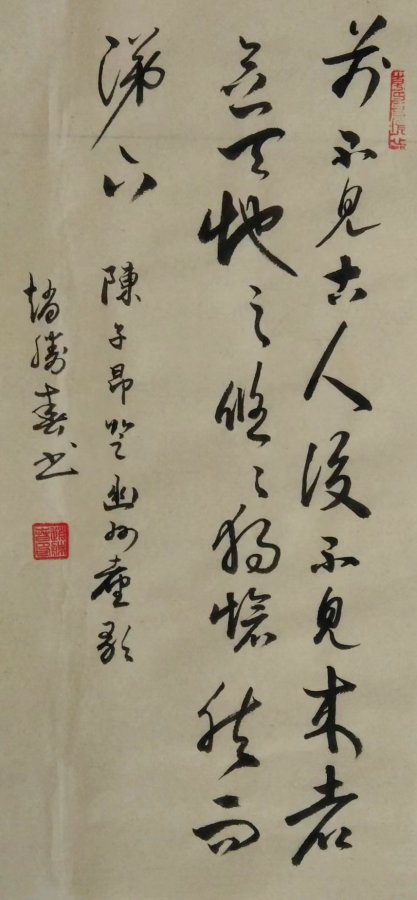 前不見古人後不見来者
念天地之悠々獨愴然而
涕下
陳子昂登幽州臺歌
趙勝春書